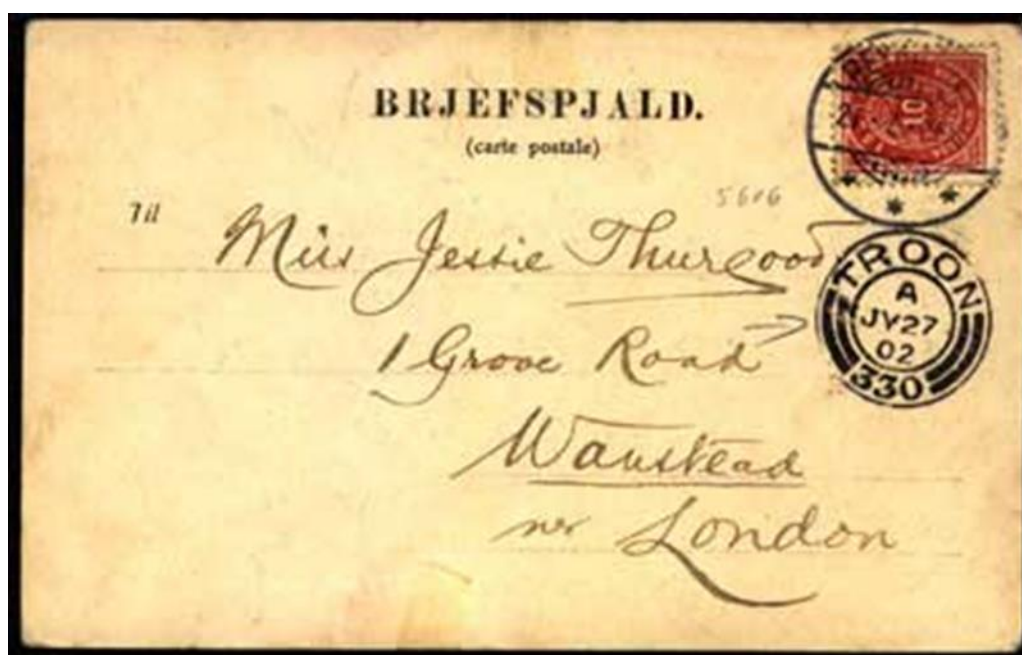 BRJEFSPJALD.
(carte postale)
5606
Til
Miss Jessie Thurgood
1 Grove Road
Wanstead
nr London
10
TROON
A
JY27
02
330